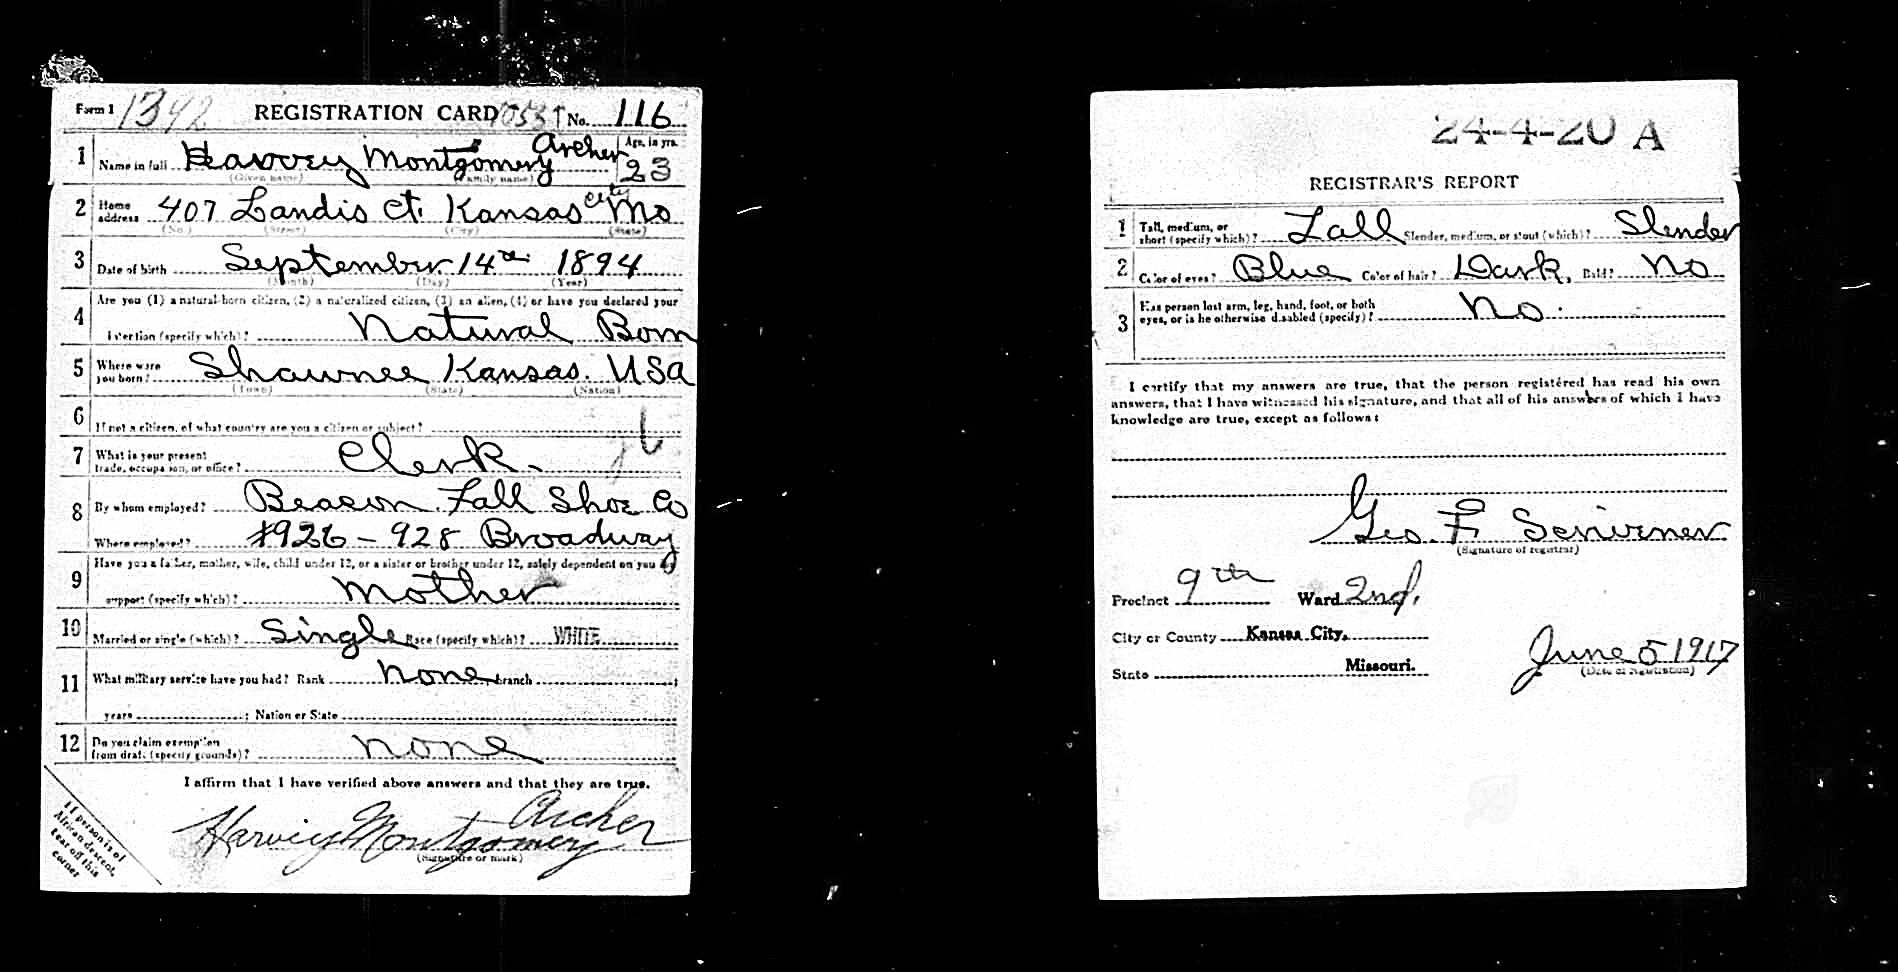 Form 1 1342 REGISTRATION CARD No. 116
1 Name in full Harvey Montgomery Archer Age, in yrs. 23
(Given name) (Family name)
2 Home address 407 Landis Ct. Kansas City Mo
(No.) (Street) (City) (State)
3 Date of birth September 14th 1894
(Month) (Day) (Year)
4 Are you (1) a natural-born citizen, (2) a naturalized citizen, (3) an alien, (4) or have you declared your
intention (specify which)? Natural Born
5 Where were you born? Shawnee Kansas. USA
(Town) (State) (Nation)
6 If not a citizen, of what country are you a citizen or subject?
7 What is your present trade, occupation, or office? Clerk.
8 By whom employed? Beacon Fall Shoe Co
Where employed? #926 - 928 Broadway
9 Have you a father, mother, wife, child under 12, or a sister or brother under 12, solely dependent on you for
support (specify which)? Mother
10 Married or single (which)? Single Race (specify which)? WHITE
11 What military service have you had? Rank None branch ;
years ; Nation or State
12 Do you claim exemption from draft (specify grounds)? None
I affirm that I have verified above answers and that they are true.
Harvey Montgomery Archer
(Signature or mark)
If person is of
African descent,
tear off this
corner
24-4-20 A
REGISTRAR'S REPORT
1 Tall, medium, or short (specify which)? Tall Slender, medium, or stout (which)? Slender
2 Color of eyes? Blue Color of hair? Dark, Bald? No
3 Has person lost arm, leg, hand, foot, or both
eyes, or is he otherwise disabled (specify)? No.
I certify that my answers are true, that the person registered has read his own
answers, that I have witnessed his signature, and that all of his answers of which I have
knowledge are true, except as follows:
Geo. F. Scrivener
(Signature of registrar)
Precinct 9th Ward 2nd.
City or County Kansas City.
State Missouri.
June 5 1917
(Date of registration)